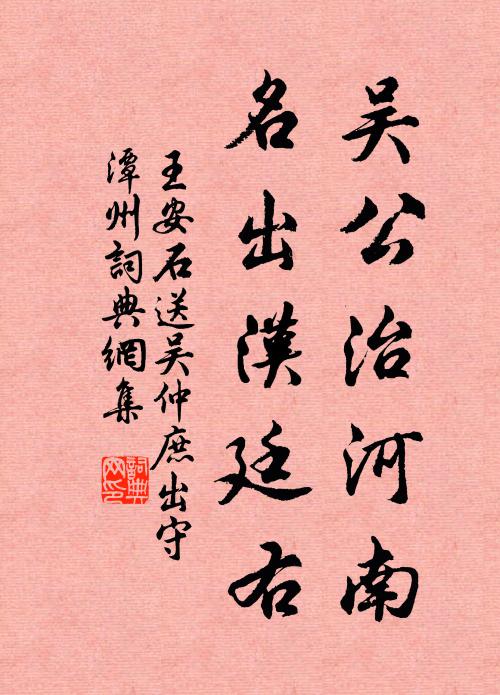 吴公治河南
名出漢廷右
王安石送吴仲庶出守
潭州詞典網集
詞典
网印